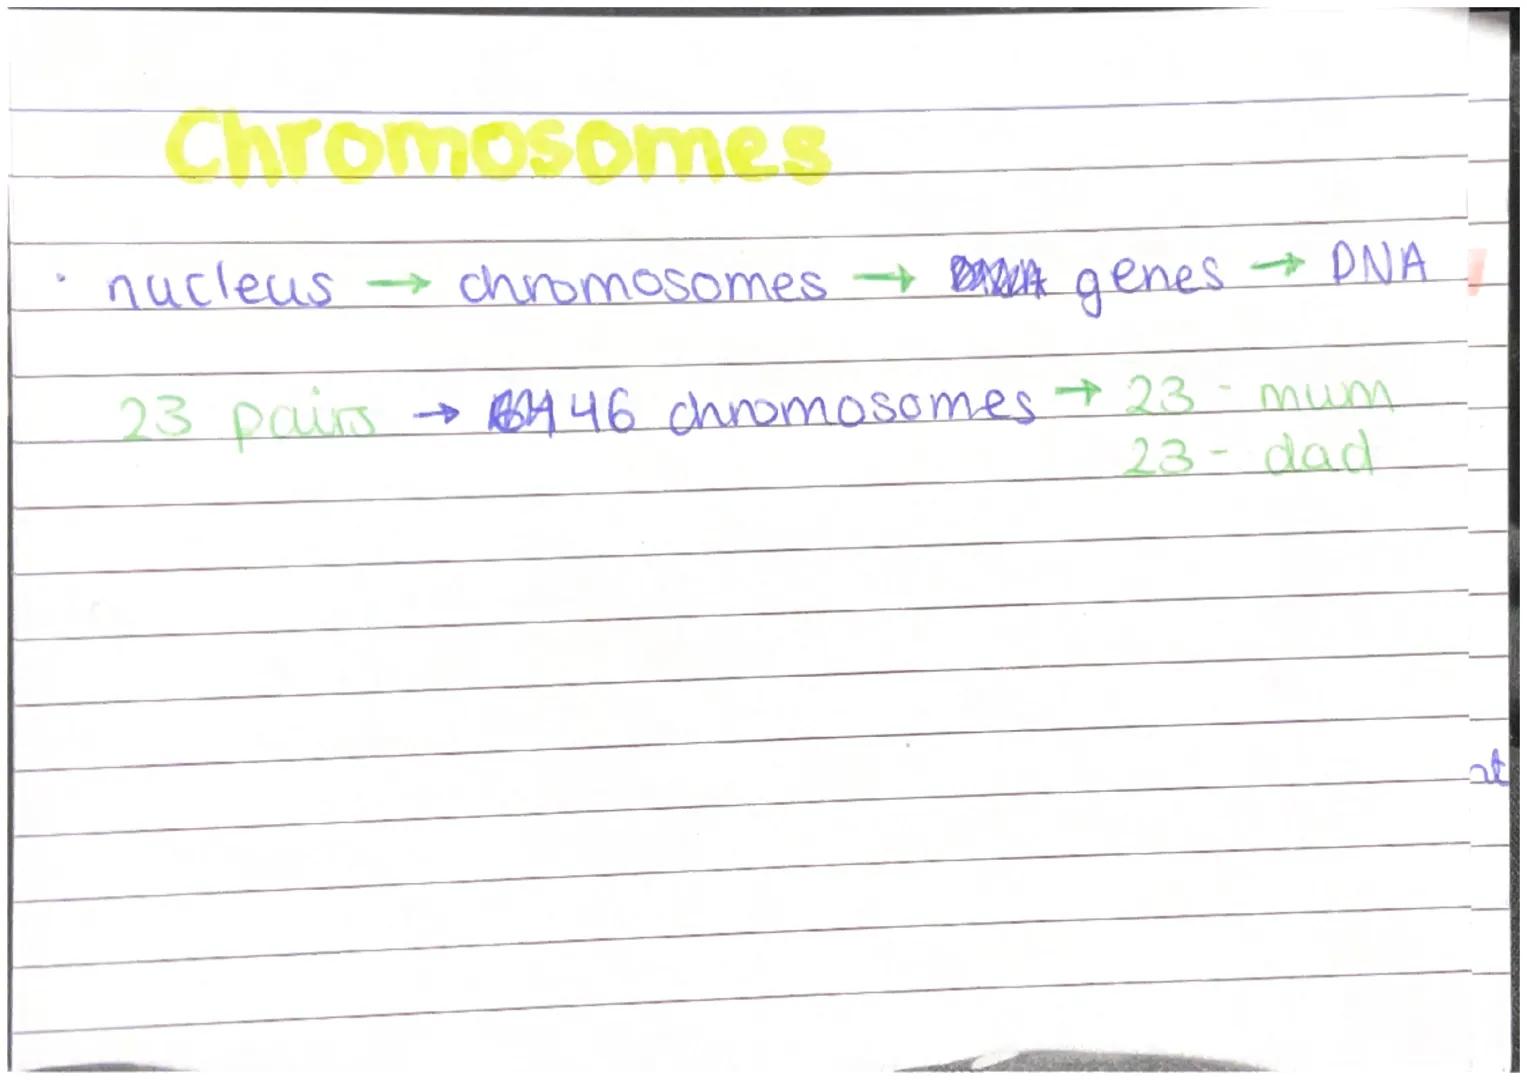 Chromosomes
· nucleus → chromosomes → genes → DNA
23 pairs → 46 chromosomes → 23 - mum
23 - dad
at